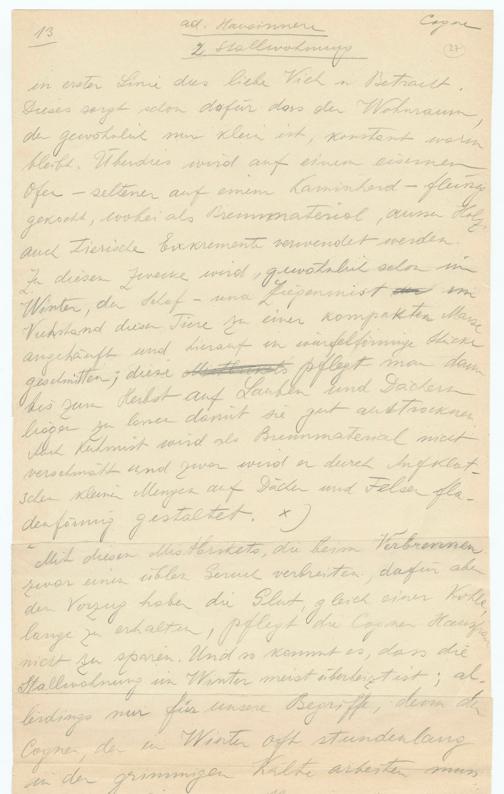 13
ad. Hausinnere
Cogne
2 Stallwohnung
27
in erster Linie das liebe Vieh in Betracht.
Dieses sorgt schon dafür dass der Wohnraum,
der gewöhnlich nur klein ist, konstant warm
bleibt. Überdies wird auf einem eisernen
Ofen – seltener auf einem Kaminherd – fleissig
gekocht, wobei als Brennmaterial, ausser Holz,
auch tierische Exkremente verwendet werden.
Zu diesem Zwecke wird, gewöhnlich schon im
Winter, der Schaf- und Ziegenmist im
Viehstand dieser Tiere zu einer kompakten Masse
angehäuft und hierauf in würfelförmige Stücke
geschnitten; diese pflegt man dann
bis zum Herbst auf Lauben und Dächern
liegen zu lassen damit sie gut austrocknen.
Auch Kuhmist wird als Brennmaterial nicht
verschmäht und zwar wird er durch Aufklat-
schen kleiner Mengen auf Dächer und Felsen fla-
denförmig gestaltet. x)
Mit diesen Mistbrikets, die beim Verbrennen
zwar einen üblen Geruch verbreiten, dafür aber
den Vorzug haben die Glut, gleich einer Kohle,
lange zu erhalten, pflegt die Cogner Hausfrau
nicht zu sparen. Und so kommt es, dass die
Stallwohnung im Winter meist überheizt ist; al-
lerdings nur für unsere Begriffe, denn der
Cogner, der im Winter oft stundenlang
in der grimmigen Kälte arbeiten muss